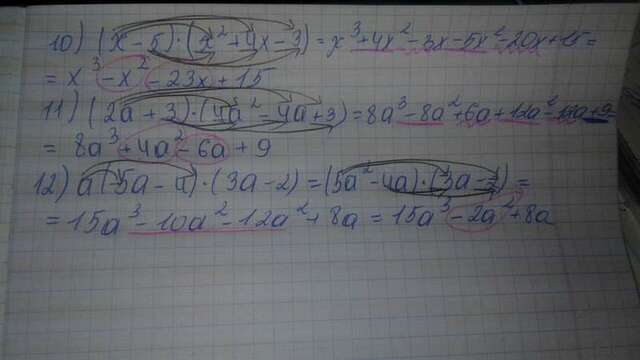 10) (x-5)·(x²+4x-3)=x³+4x²-3x-5x²-20x+15=
=x³-x²-23x+15
11) (2a+3)·(4a²-4a+3)=8a³-8a²+6a+12a²-12a+9
=8a³+4a²-6a+9
12) a(5a-4)·(3a-2)=(5a²-4a)·(3a-2)=
=15a³-10a²-12a²+8a=15a³-2a²+8a